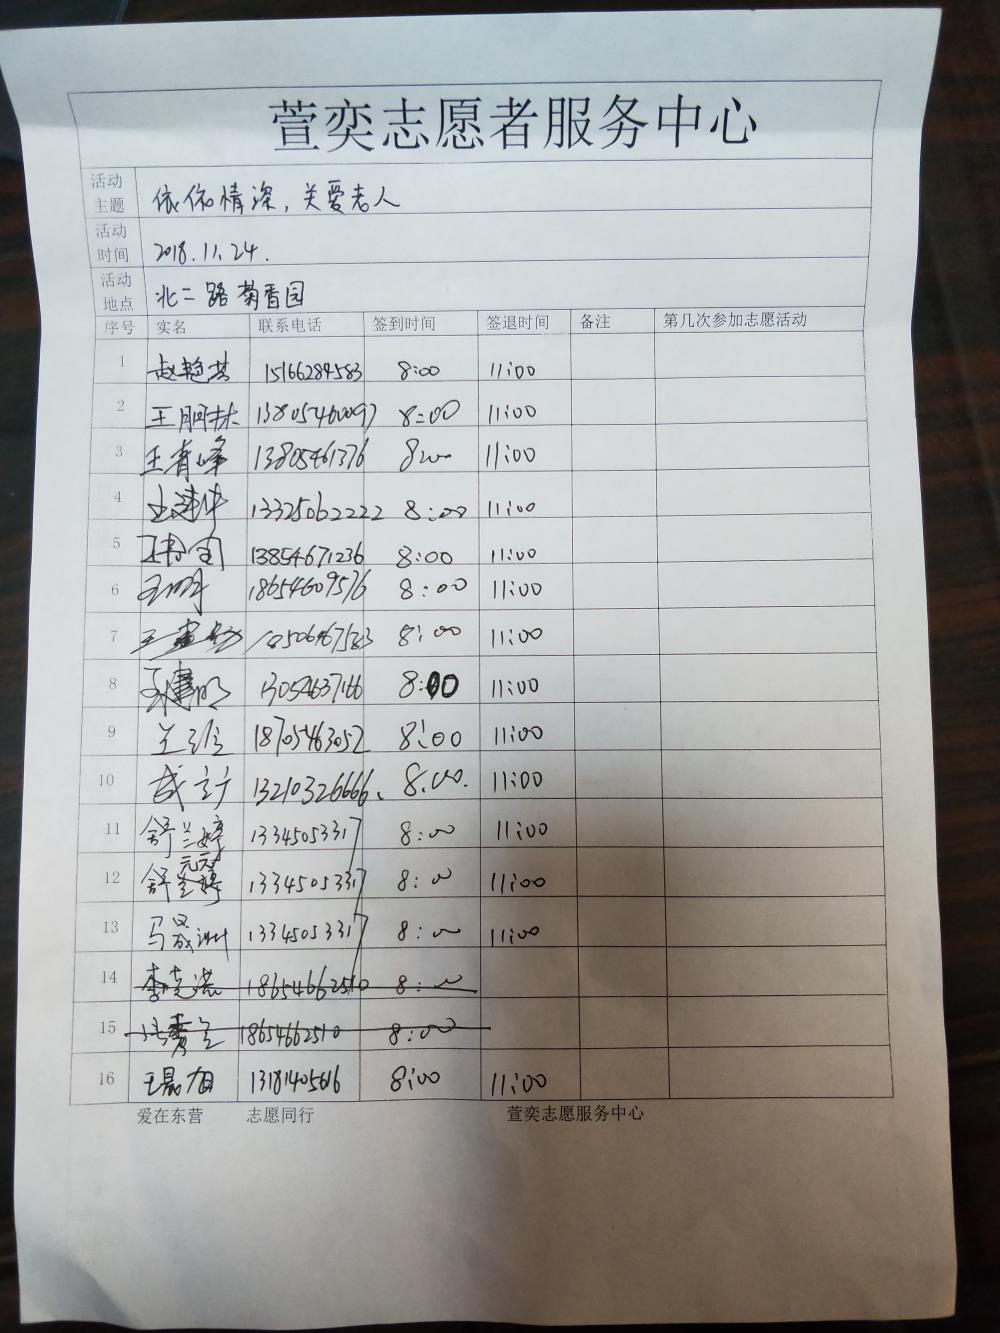 萱奕志愿者服务中心
活动主题 依依情深，关爱老人
活动时间 2018.11.24.
活动地点 北二路菊香园
序号 实名 联系电话 签到时间 签退时间 备注 第几次参加志愿活动
1 赵艳芸 15166284583 8:00 11:00
2 王丽林 13805460097 8:00 11:00
3 王青峰 13805461376 8:00 11:00
4 13325062222 8:00 11:00
5 13854671236 8:00 11:00
6 18654609576 8:00 11:00
7 8:00 11:00
8 王建明 13054637166 8:00 11:00
9 兰 18705463052 8:00 11:00
10 成 13210326666. 8:00. 11:00
11 舒兰婷 13345053317 8:00 11:00
12 舒 元元 婷 13345053317 8:00 11:00
13 马晟洲 13345053317 8:00 11:00
14 李 18654662510 8:00
15 18654662510 8:00
16 王晨旭 13181405616 8:00 11:00
爱在东营 志愿同行 萱奕志愿服务中心